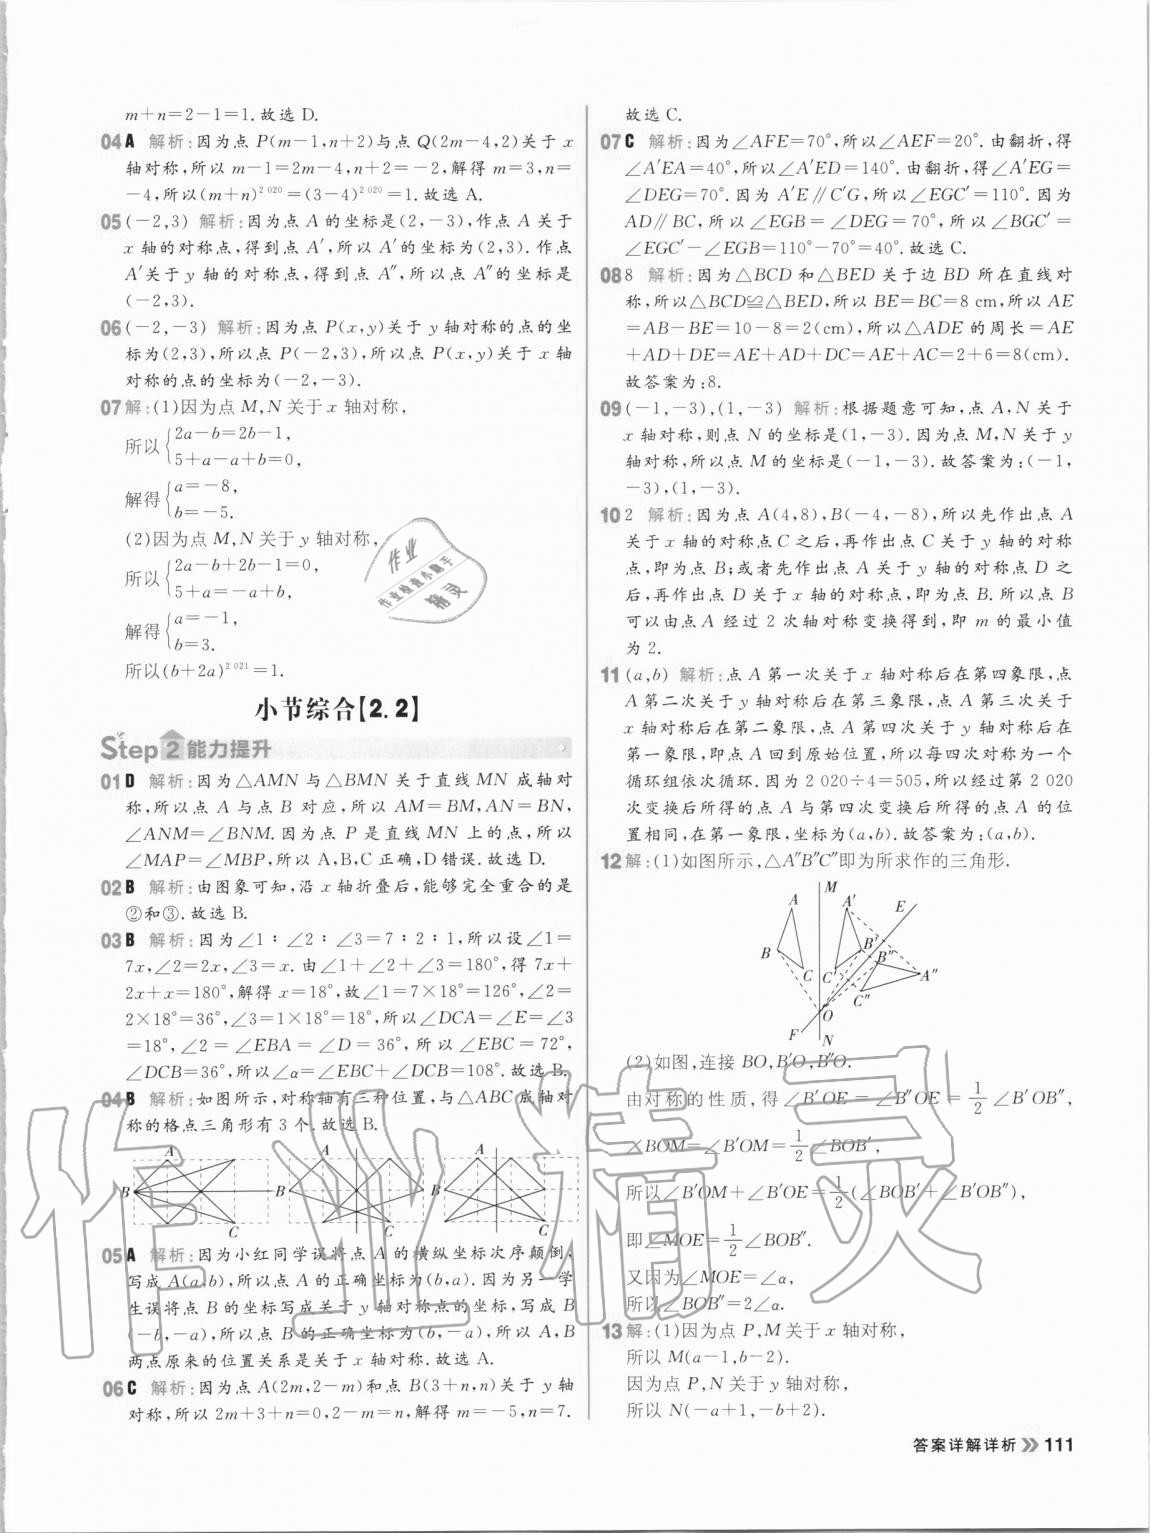 m+n=2-1=1.故选 D.
04 A 解析:因为点 P(m-1,n+2)与点 Q(2m-4,2)关于 x
轴对称,所以 m-1=2m-4,n+2=-2,解得 m=3,n=
-4,所以(m+n)^{2 020}=(3-4)^{2 020}=1.故选 A.
05 (-2,3) 解析:因为点 A 的坐标是(2,-3),作点 A 关于
x 轴的对称点,得到点 A′,所以 A′的坐标为(2,3).作点
A′关于 y 轴的对称点,得到点 A″,所以点 A″的坐标是
(-2,3).
06 (-2,-3) 解析:因为点 P(x,y)关于 y 轴对称的点的坐
标为(2,3),所以点 P(-2,3),所以点 P(x,y)关于 x 轴
对称的点的坐标为(-2,-3).
07 解:(1)因为点 M,N 关于 x 轴对称,
所以{2a-b=2b-1,
5+a-a+b=0,
解得{a=-8,
b=-5.
(2)因为点 M,N 关于 y 轴对称,
所以{2a-b+2b-1=0,
5+a=-a+b,
解得{a=-1,
b=3.
所以(b+2a)^{2 021}=1.
小节综合【2.2】
Step 2 能力提升
01 D 解析:因为△AMN 与△BMN 关于直线 MN 成轴对
称,所以点 A 与点 B 对应,所以 AM=BM,AN=BN,
∠ANM=∠BNM.因为点 P 是直线 MN 上的点,所以
∠MAP=∠MBP,所以 A,B,C 正确,D 错误.故选 D.
02 B 解析:由图象可知,沿 x 轴折叠后,能够完全重合的是
②和③.故选 B.
03 B 解析:因为∠1∶∠2∶∠3=7∶2∶1,所以设∠1=
7x,∠2=2x,∠3=x.由∠1+∠2+∠3=180°,得 7x+
2x+x=180°,解得 x=18°,故∠1=7×18°=126°,∠2=
2×18°=36°,∠3=1×18°=18°,所以∠DCA=∠E=∠3
=18°,∠2=∠EBA=∠D=36°,所以∠EBC=72°,
∠DCB=36°,所以∠α=∠EBC+∠DCB=108°.故选 B.
04 B 解析:如图所示,对称轴有三种位置,与△ABC 成轴对
称的格点三角形有 3 个.故选 B.
A
B
C
A
B
C
A
B
C
05 A 解析:因为小红同学误将点 A 的横纵坐标次序颠倒,
写成 A(a,b),所以点 A 的正确坐标为(b,a).因为另一学
生误将点 B 的坐标写成关于 y 轴对称点的坐标,写成 B
(-b,-a),所以点 B 的正确坐标为(b,-a),所以 A,B
两点原来的位置关系是关于 x 轴对称.故选 A.
06 C 解析:因为点 A(2m,2-m)和点 B(3+n,n)关于 y 轴
对称,所以 2m+3+n=0,2-m=n,解得 m=-5,n=7.
故选 C.
07 C 解析:因为∠AFE=70°,所以∠AEF=20°.由翻折,得
∠A′EA=40°,所以∠A′ED=140°.由翻折,得∠A′EG=
∠DEG=70°.因为 A′E∥C′G,所以∠EGC′=110°.因为
AD∥BC,所以∠EGB=∠DEG=70°,所以∠BGC′=
∠EGC′-∠EGB=110°-70°=40°.故选 C.
08 8 解析:因为△BCD 和△BED 关于边 BD 所在直线对
称,所以△BCD≌△BED,所以 BE=BC=8 cm,所以 AE
=AB-BE=10-8=2(cm),所以△ADE 的周长=AE
+AD+DE=AE+AD+DC=AE+AC=2+6=8(cm).
故答案为:8.
09 (-1,-3),(1,-3) 解析:根据题意可知,点 A,N 关于
x 轴对称,则点 N 的坐标是(1,-3).因为点 M,N 关于 y
轴对称,所以点 M 的坐标是(-1,-3).故答案为:(-1,
-3),(1,-3).
10 2 解析:因为点 A(4,8),B(-4,-8),所以先作出点 A
关于 x 轴的对称点 C 之后,再作出点 C 关于 y 轴的对称
点,即为点 B;或者先作出点 A 关于 y 轴的对称点 D 之
后,再作出点 D 关于 x 轴的对称点,即为点 B.所以点 B
可以由点 A 经过 2 次轴对称变换得到,即 m 的最小值
为 2.
11 (a,b) 解析:点 A 第一次关于 x 轴对称后在第四象限,点
A 第二次关于 y 轴对称后在第三象限,点 A 第三次关于
x 轴对称后在第二象限,点 A 第四次关于 y 轴对称后在
第一象限,即点 A 回到原始位置,所以每四次对称为一个
循环组依次循环.因为 2 020÷4=505,所以经过第 2 020
次变换后所得的点 A 与第四次变换后所得的点 A 的位
置相同,在第一象限,坐标为(a,b).故答案为:(a,b).
12 解:(1)如图所示,△A″B″C″即为所求作的三角形.
M
A
A′
E
B
B′
B″
C
C′
A″
C″
O
F
N
(2)如图,连接 BO,B′O,B″O.
由对称的性质,得∠B′OE=∠B″OE=1/2∠B′OB″,
∠BOM=∠B′OM=1/2∠BOB′,
所以∠B′OM+∠B′OE=1/2(∠BOB′+∠B′OB″),
即∠MOE=1/2∠BOB″.
又因为∠MOE=∠α,
所以∠BOB″=2∠α.
13 解:(1)因为点 P,M 关于 x 轴对称,
所以 M(a-1,b-2).
因为点 P,N 关于 y 轴对称,
所以 N(-a+1,-b+2).
答案详解详析 111
作业
作业检查小助手
精灵
作业精灵